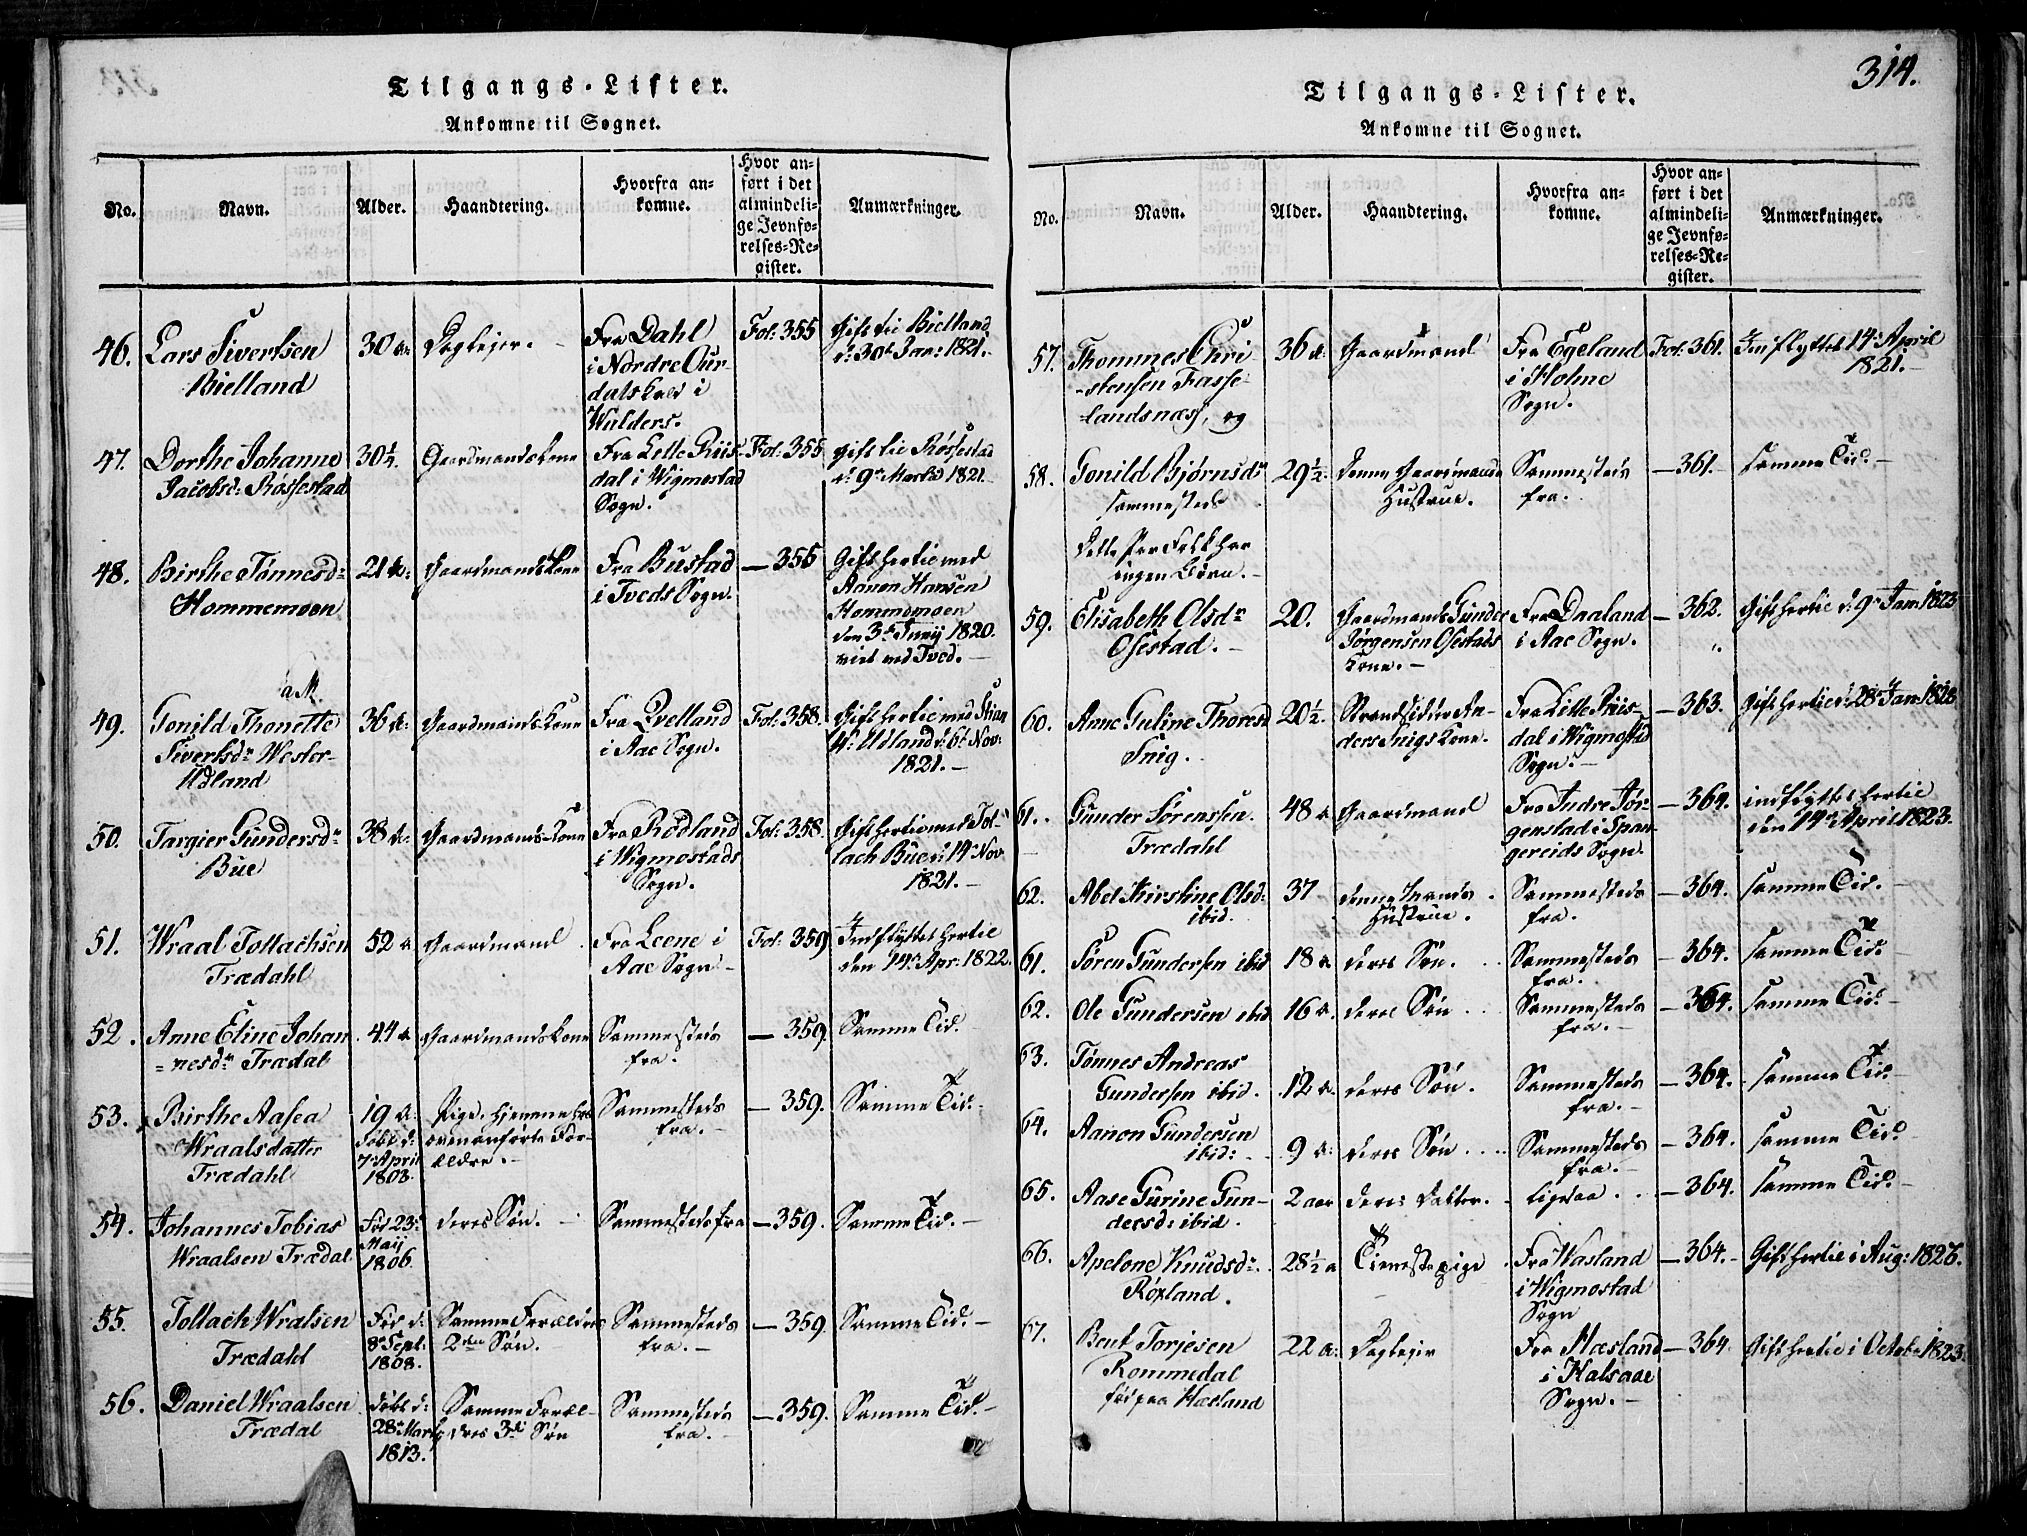 Tilgangs-Lister.
Ankomne til Sognet.
No.
Navn.
Alder.
Haandtering.
Hvorfra an-
komne.
Hvor an-
ført i det
almindeli-
ge Jevnfø-
relses-Re-
gister.
Anmærkninger.
46. Lars Sivertsen
Bielland
30 a:
Dagleier.
Fra Dahl
i Nordre Our-
dals
i
Walders.
Fol: 355
Gift til Bielland
d: 30t Jan: 1821.
47. Dorthe Johanne
Jacobsd: Røssestad
30 1/4.
Gaardmandskone
Fra Lille Riis-
dal i Wigmostad
Sogn.
Fol: 355
Gift til Røssestad
d: 9de Martii 1821.
48. Birthe Tønnesd:
Hommemoen
21
Gaardmandskone
Fra Bustad
i Tveds Sogn.
— 355
Gift hertil med
Aanon Hansen
Hommemoen
den 3de Junij 1820.
viet ved Tved. —
a M.
49. Gonild Thonette
Sivertsdr Wester-
Udland
36
Gaardmandskone
Fra Qvelland
i Aae Sogn.
Fol: 358.
Gift hertil med Stian
W: Udland d: 6t Nov:
1821. —
50. Targier Gundersdr
Bue
38
Gaardmandskone
Fra Rødland
i Wigmostads
Sogn.
Fol: 358.
Gift hertil med Tol-
lach Bue d: 14de Nov
1821. —
51. Wraal Tollachsen
Trædahl
52 a
Gaardmand
Fra Leene i
Aae Sogn —
Fol: 359
Indflyttet hertil
den 14de Apr: 1822.
52. Anne Eline Johan
= nesdr Trædal
44 a
Gaardmandskone
Sammesteds
fra.
— 359.
Samme Tid. —
53. Birthe Aasea
Wraalsdatter
Trædahl
19 a:
Døbt d:
7de April
1803.
Pige, hjemme hos
ovenanførte For-
ældre. —
Sammesteds
fra. —
— 359.
Samme Tid. —
54. Johannes Tobias
Wraalsen Trædal
Fød 23:
Maij
1806
deres Søn. —
Sammesteds fra
— 359.
Samme Tid. —
55. Tollach Wralsen
Trædahl
Fød d:
8de Sept:
1808.
Samme Forældres
2den Søn. —
Sammesteds
fra. —
— 359.
Samme Tid. —
56. Daniel Wraalsen
Trædal
Døbt d:
28de Marti
1813.
Samme Foræl-
dres 3de Søn
Sammesteds
fra. —
— 359.
Samme Tid. —
314.
Tilgangs-Lister.
Ankomne til Sognet.
No.
Navn.
Alder.
Haandtering.
Hvorfra an-
komne.
Hvor an-
ført i det
almindeli-
ge Jevnfø-
relses-Re-
gister.
Anmærkninger.
57. Thommes Chri
-stensen Fasse-
landsnæss, og
36 a:
Gaardmand
Fra Egeland
i Holme
Sogn.
Fol: 361.
Indflyttet 14de April
1821. —
58. Gonild Bjørnsdr
sammesteds
Dette Par Folk har
ingen Børn. —
29 1/2.
Denne Gaardmands
Hustrue.
Sammesteds
fra.
— 361.
samme Tid. —
59. Elisabeth Olsdr
Osestad. —
20.
Gaardmands Gunder
Jørgensen Osestads
Kone. —
Fra Daaland
i Aae Sogn.
— 362.
Gift hertil d: 9de Jan: 1823
60. Anne Guline Thoresd
Snig.
20 1/2.
Strandsidder An-
ders Snigs Kone. —
Fra Lille Riis-
dal i Wigmostad
Sogn. —
— 363.
Gift hertil d: 28de Jan: 1823
61. Gunder Sørenssen.
Trædahl
48 a
Gaardmand
Fra Indre Jør-
genstad i Span-
gereids Sogn.
— 364.
indflyttet hertil
den 14de April 1823.
62. Abel Kirstine Olsd:
ibid.
37
denne Mands
Hustrue.
Sammesteds
fra.
— 364.
samme Tid. —
61. Søren Gundersen ibid
18 a
deres Søn.
Sammesteds
fra.
— 364.
samme Tid. —
62. Ole Gundersen ibid
16 a.
deres Søn
Sammesteds
fra. —
— 364.
samme Tid. —
63. Tønnes Andreas
Gundersen ibid.
12 a.
deres Søn.
Sammesteds
fra. —
— 364.
samme Tid. —
64. Aanon Gundersen
ibid:
9 a:
deres Søn
Sammesteds
fra. —
— 364.
samme Tid.
65. Aase Gurine Gun-
dersd: ibid.
2 aar
deres Datter.
ligesaa.
— 364.
samme Tid. —
66. Apelone Knudsdr
Røpland.
28 1/2 a
Tienestepige
Fra Wasland
i Wigmostad
Sogn
— 364. —
Gift hertil i Aug: 1823.
67. Bent Torjesen
Rommedal
fød paa Hæsland
22 a:
Dagleier
Fra Hæsland
i Halsaae
Sogn. —
— 364.
Gift hertil i Octobr 1823.